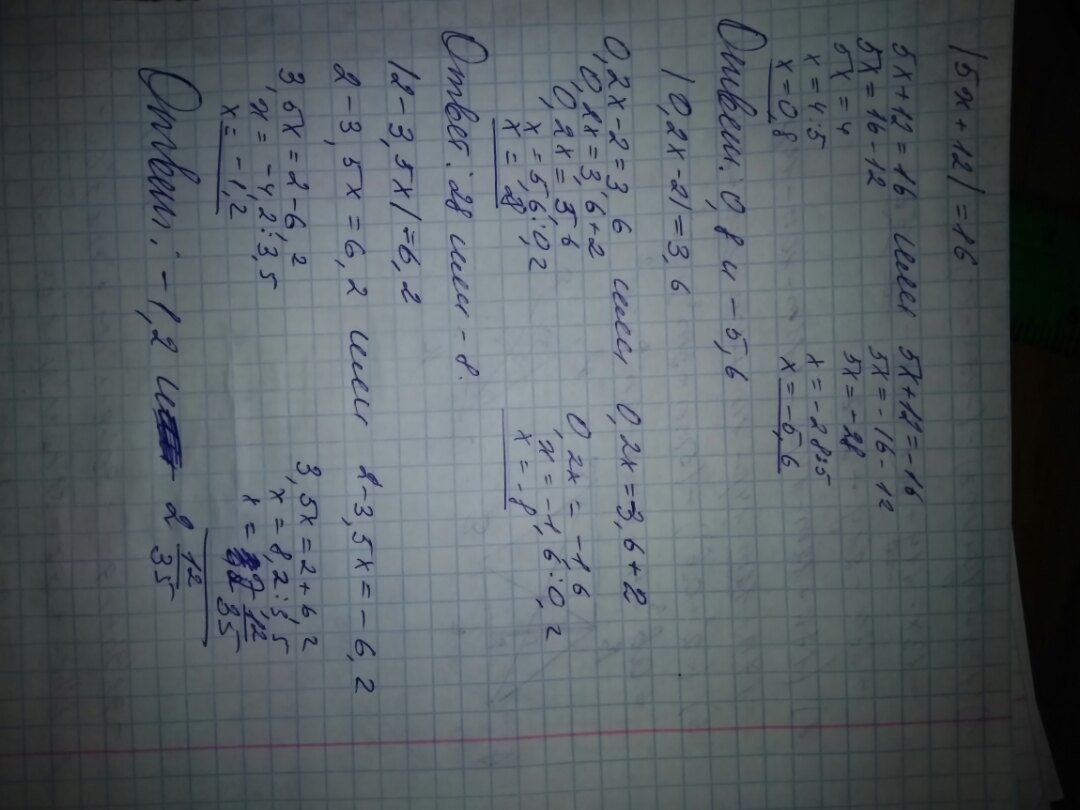 |5x+12|=16
5x+12=16 или 5x+12=-16
5x=16-12 5x=-16-12
5x=4 5x=-28
x=4:5 x=-28:5
x=0,8 x=-5,6
Ответ: 0,8 и -5,6
|0,2x-2|=3,6
0,2x-2=3,6 или 0,2x=-3,6+2
0,2x=3,6+2 0,2x=-1,6
0,2x=5,6 x=-1,6:0,2
x=5,6:0,2 x=-8
x=28
Ответ: 28 или -8.
|2-3,5x|=6,2
2-3,5x=6,2 или 2-3,5x=-6,2
3,5x=2-6,2 3,5x=2+6,2
x=-4,2:3,5 x=8,2:3,5
x=-1,2 x=2 12/35
Ответ: -1,2 и 2 12/35